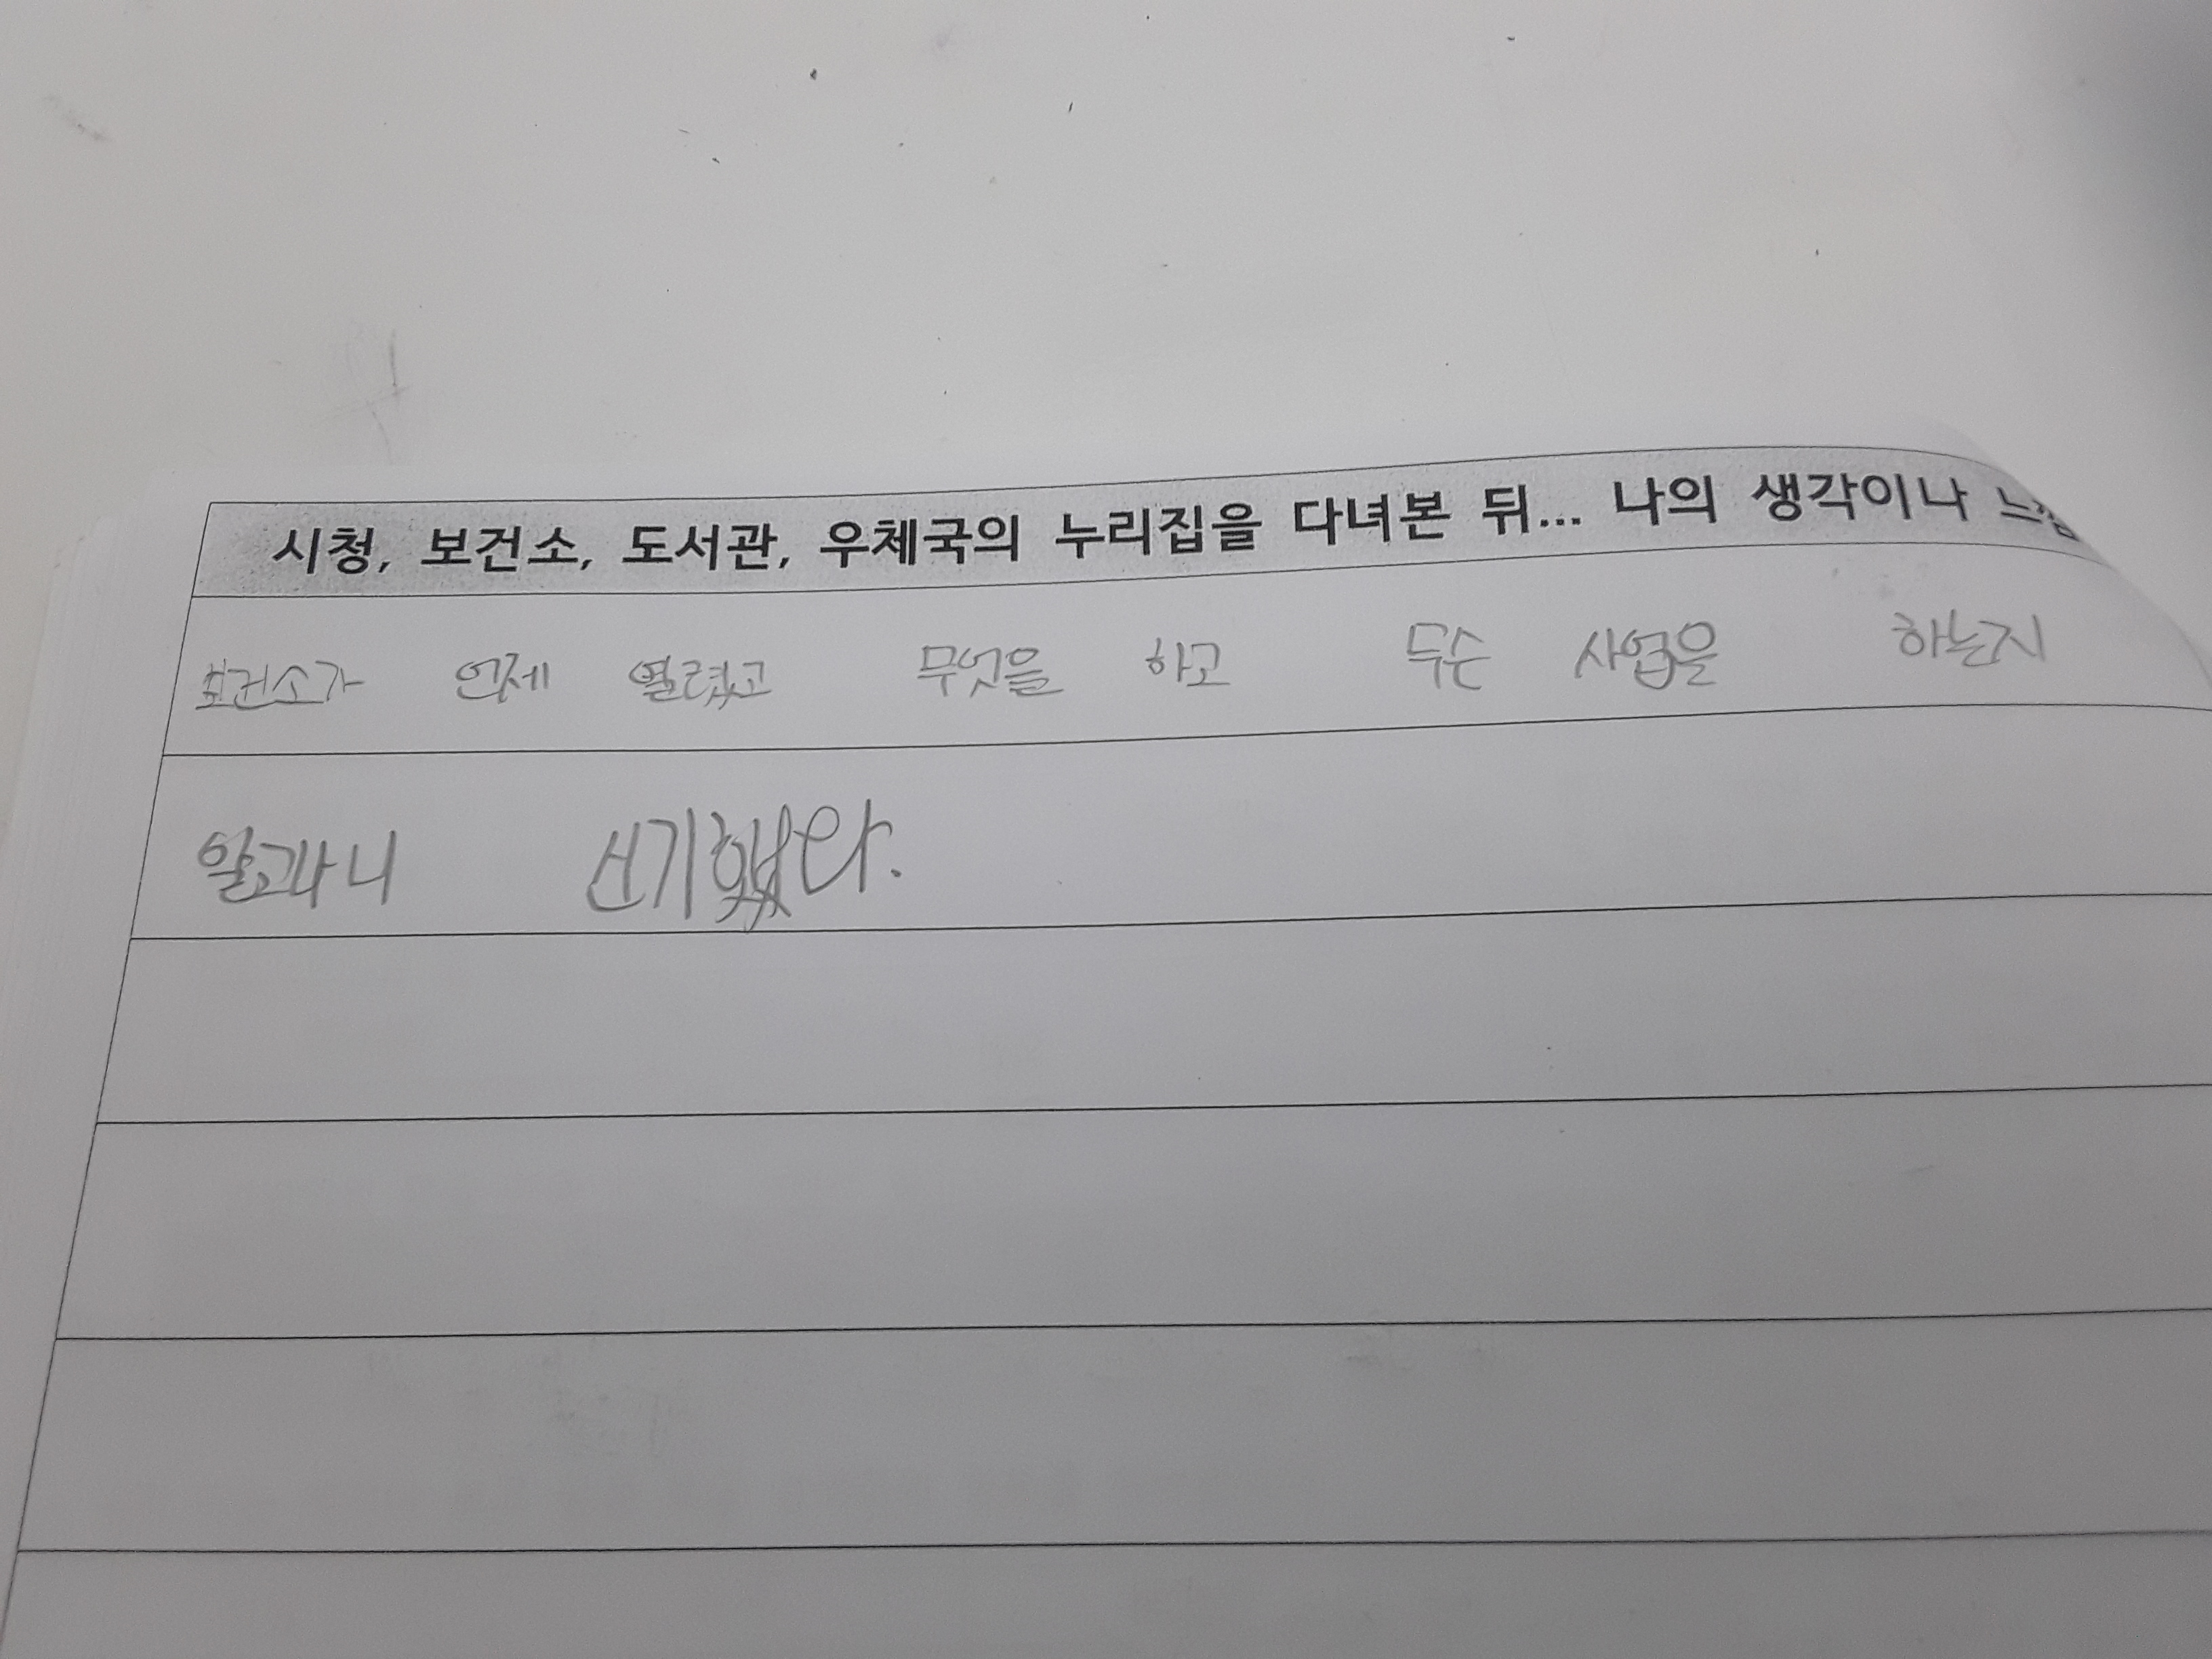 시청, 보건소, 도서관, 우체국의 누리집을 다녀본 뒤... 나의 생각이나
보건소가 언제 열렸고 무엇을 하고 무슨 사업을 하는지
알고나니 신기했다.